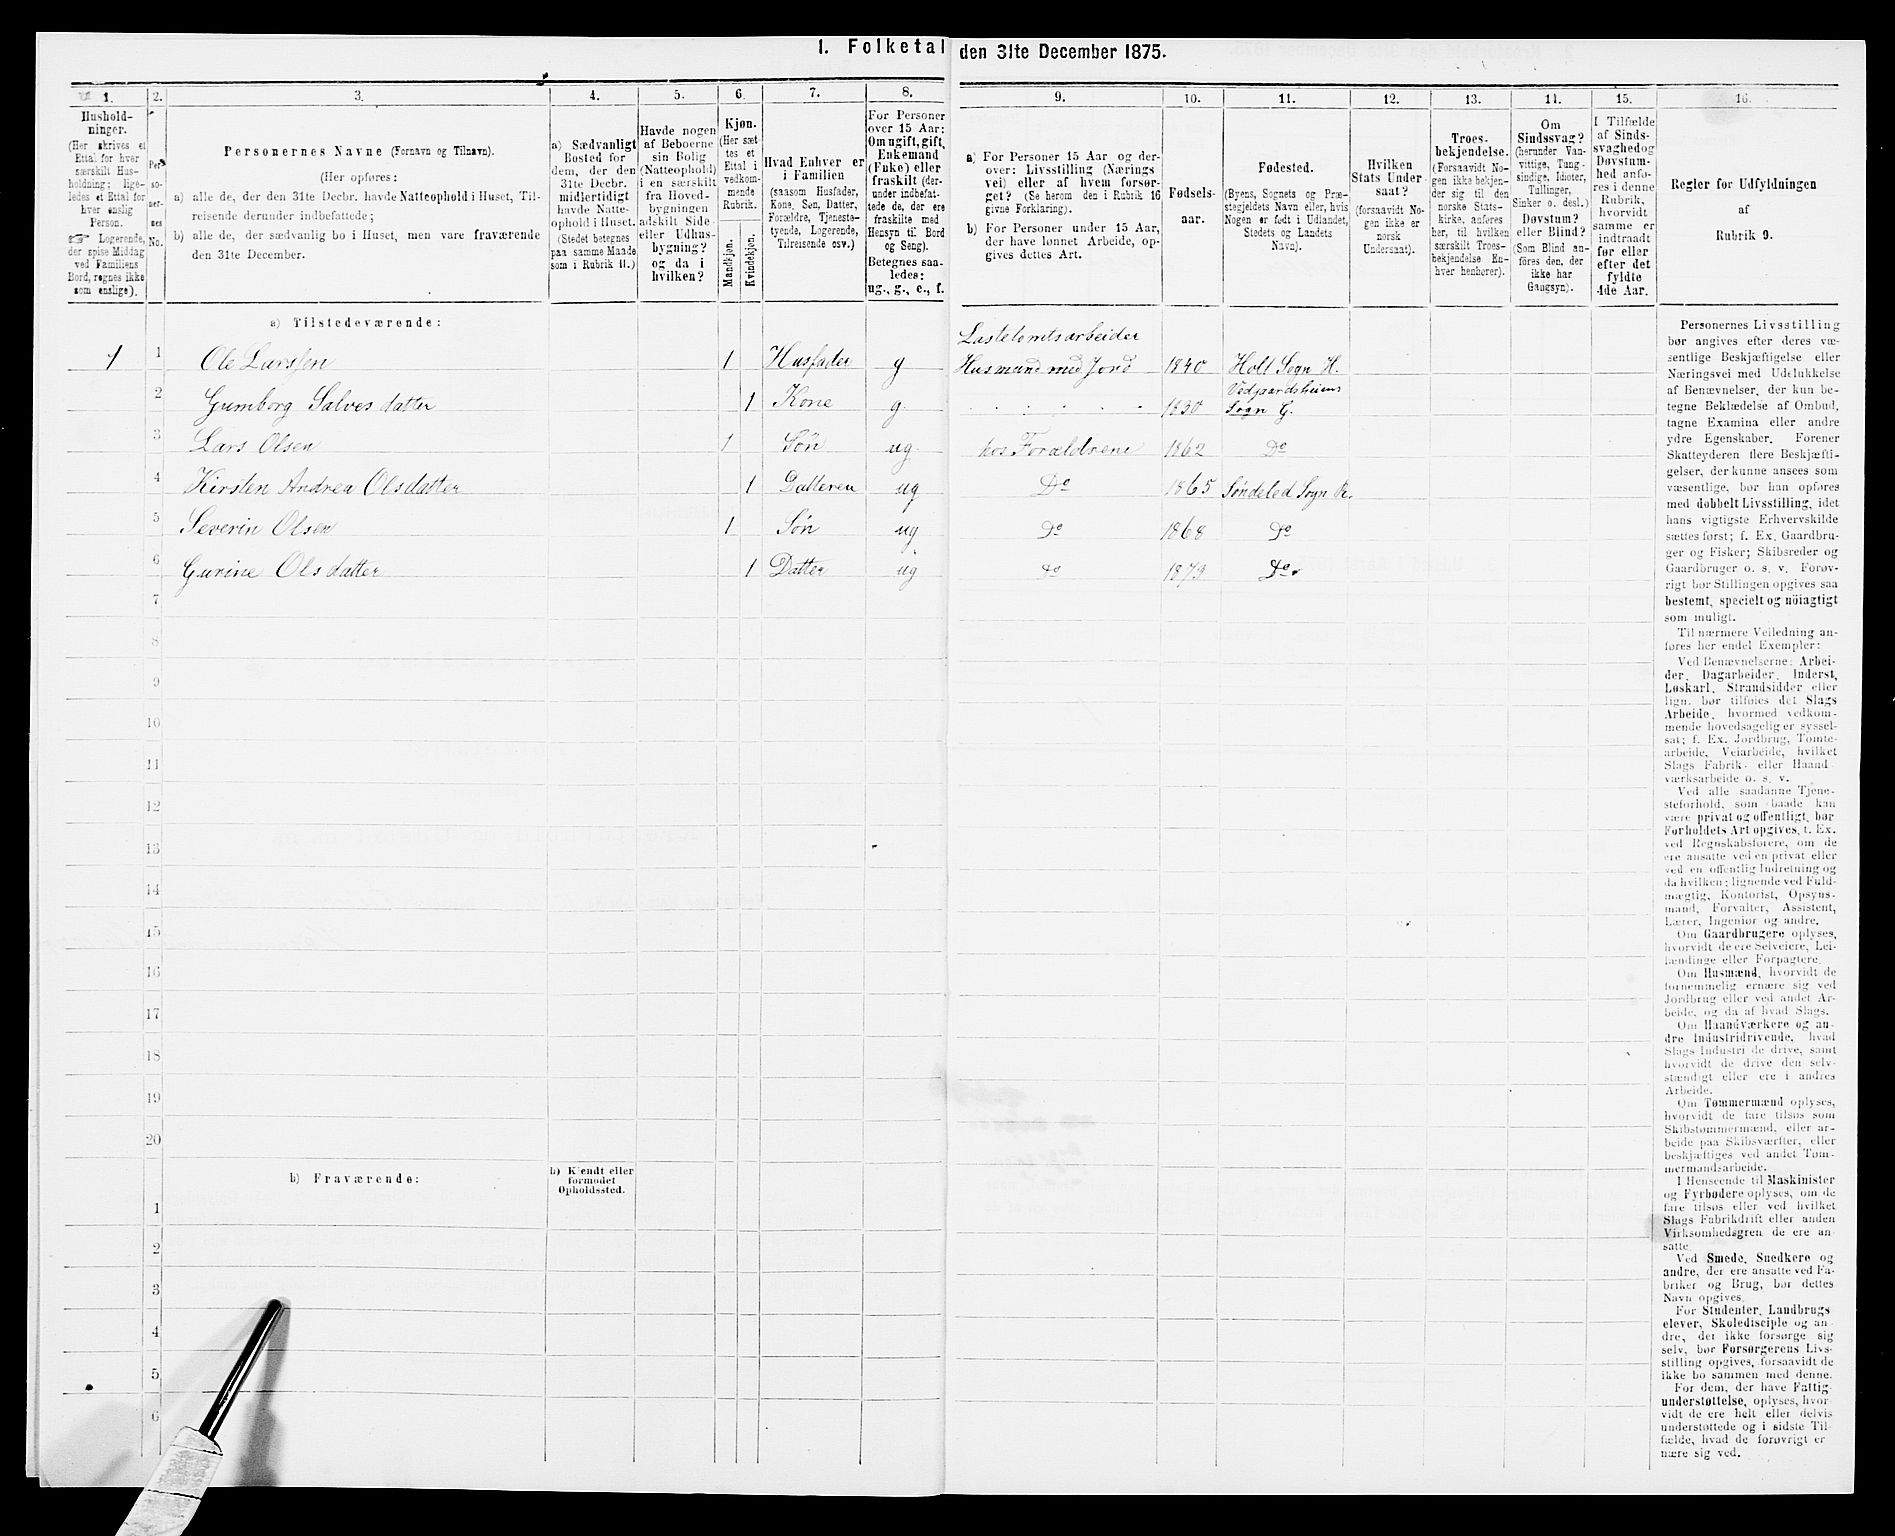 1. Folketal den 31te December 1875.
1. 2. 3. 4. 5. 6. 7. 8. 9. 10. 11. 12. 13. 14. 15. 16.
Hushold-
ninger.
(Her skrives et
Ettal for hver
særskilt Hus-
holdning; lige-
ledes et Ettal for
hver enslig
Person.
☞ Logerende,
der spise Middag
ved Familiens
Bord, regnes ikke
som enslige).
Per-
so-
ner-
nes
No.
Personernes Navne (Fornavn og Tilnavn).
(Her opføres:
a) alle de, der den 31te Decbr. havde Natteophold i Huset, Til-
reisende derunder indbefattede;
b) alle de, der sædvanlig bo i Huset, men vare fraværende
den 31te December.
a) Sædvanligt
Bosted for
dem, der den
31te Decbr.
midlertidigt
havde Natte-
ophold i Huset.
(Stedet betegnes
paa samme Maade
som i Rubrik 11.)
Havde nogen
af Beboerne
sin Bolig
(Natteophold)
i en særskilt
fra Hoved-
bygningen
adskilt Side-
eller Udhus-
bygning?
og da i
hvilken?
Kjøn.
(Her sæt-
tes et
Ettal i
vedkom-
mende
Rubrik.
Mandkjøn.
Kvindekjøn.
Hvad Enhver er
i Familien
(saasom Husfader,
Kone, Søn, Datter,
Forældre, Tjeneste-
tyende, Logerende,
Tilreisende osv.)
For Personer
over 15 Aar:
Om ugift, gift,
Enkemand
(Enke) eller
fraskilt (der-
under indbefat-
tede de, der ere
fraskilte med
Hensyn til Bord
og Seng).
Betegnes saa-
ledes:
ug., g., e., f.
a) For Personer 15 Aar og der-
over: Livsstilling (Nærings-
vei) eller af hvem forsør-
get? (Se herom den i Rubrik 16
givne Forklaring).
b) For Personer under 15 Aar,
der have lønnet Arbeide, op-
gives dettes Art.
Fødsels-
aar.
Fødested.
(Byens, Sognets og Præ-
stegjeldets Navn eller, hvis
Nogen er født i Udlandet,
Stedets og Landets
Navn).
Hvilken
Stats Under-
saat?
(forsaavidt No-
gen ikke er
norsk
Undersaat).
Troes-
bekjendelse.
(Forsaavidt No-
gen ikke bekjen-
der sig til den
norske Stats-
kirke, anføres
her, til hvilken
særskilt Troes-
bekjendelse En-
hver henhører).
Om
Sindssvag?
(herunder Van-
vittige, Tung-
sindige, Idioter,
Tullinger,
Sinker o. desl.)
Døvstum?
eller Blind?
(Som Blind an-
føres den, der
ikke har
Gangsyn).
I Tilfælde
af Sinds-
svaghed og
Døvstum-
hed anfø-
res i denne
Rubrik,
hvorvidt
samme er
indtraadt
før eller
efter det
fyldte
4de Aar.
Regler for Udfyldningen
af
Rubrik 9.
a) Tilstedeværende:
Lastetomtsarbeider
1 1 Ole Larssen 1 Husfader g Husmand med Jord 1840 Holt Sogn H.
Vedgaardsheiens
2 Gumborg Salvesdatter 1 Kone g. 1830 Sogn G.
3 Lars Olsen 1 Søn ug. hos Forældrene 1862 Do
4 Kirsten Andrea Olsdatter 1 Datteren ug Do 1865 Søndeled Sogn R.
5 Severin Olsen 1 Søn ug Do 1868 Do
6 Gurine Olsdatter 1 Datter ug Do 1873 Do.
7
8
9
10
11
12
13
14
15
16
17
18
19
20
b) Fraværende:
b) Kjendt eller
formodet
Opholdssted.
1
2
3
4
5
6
Personernes Livsstilling
bør angives efter deres væ-
sentlige Beskjæftigelse eller
Næringsvei med Udelukkelse
af Benævnelser, der kun be-
tegne Beklædelse af Ombud,
tagne Examina eller andre
ydre Egenskaber. Forener
Skatteyderen flere Beskjæfti-
gelser, der kunne ansees som
væsentlige, bør han opføres
med dobbelt Livsstilling, idet
hans vigtigste Erhvervskilde
sættes først; f. Ex. Gaardbru-
ger og Fisker; Skibsreder og
Gaardbruger o. s. v. Forøv-
rigt bør Stillingen opgives saa
bestemt, specielt og nöiagtigt
som muligt.
Til nærmere Veiledning an-
føres her endel Exempler:
Ved Benævnelserne: Arbei-
der, Dagarbeider, Inderst,
Løskarl, Strandsidder eller
lign. bør tilføies det Slags
Arbeide, hvormed vedkom-
mende hovedsagelig er syssel-
sat; f. Ex. Jordbrug, Tomte-
arbeide, Veiarbeide, hvilket
Slags Fabrik- eller Haand-
værksarbeide o. s. v.
Ved alle saadanne Tjene-
steforhold, som baade kan
være privat og offentligt, bør
Forholdets Art opgives, t. Ex.
ved Regnskabsførere, om de
ere ansatte ved en privat eller
ved en offentlig Indretning og
da hvilken; lignende ved Fuld-
mægtig, Kontorist, Opsyns-
mand, Forvalter, Assistent,
Lærer, Ingeniør og andre.
Om Gaardbrugere oplyses,
hvorvidt de ere Selveiere, Lei-
lændinge eller Forpagtere.
Om Husmænd, hvorvidt de
fornemmelig ernære sig ved
Jordbrug eller ved andet Ar-
beide, og da af hvad Slags.
Om Haandværkere og an-
dre Industridrivende, hvad
Slags Industri de drive, samt
hvorvidt de drive den selv-
stændigt eller ere i andres
Arbeide.
Om Tømmermænd oplyses,
hvorvidt de fare tilsøs som
Skibstømmermænd, eller ar-
beide paa Skibsværfter, eller
beskjæftiges ved andet Tøm-
mermandsarbeide.
I Henseende til Maskinister
og Fyrbødere oplyses, om de
fare tilsøs eller ved hvilket
Slags Fabrikdrift eller anden
Virksomhedsgren de ere an-
satte.
Ved Smede, Snedkere og
andre, der ere ansatte ved Fa-
briker og Brug, bør dettes
Navn opgives.
For Studenter, Landbrugs-
elever, Skoledisciple og an-
dre, der ikke forsørge sig
selv, bør Forsørgerens Livs-
stilling opgives, forsaavidt de
ikke bo sammen med denne.
For dem, der have Fattig-
understøttelse, oplyses, hvor-
vidt de ere helt eller delvis
understøttede og i sidste Til-
fælde, hvad de forøvrigt er-
nære sig ved.